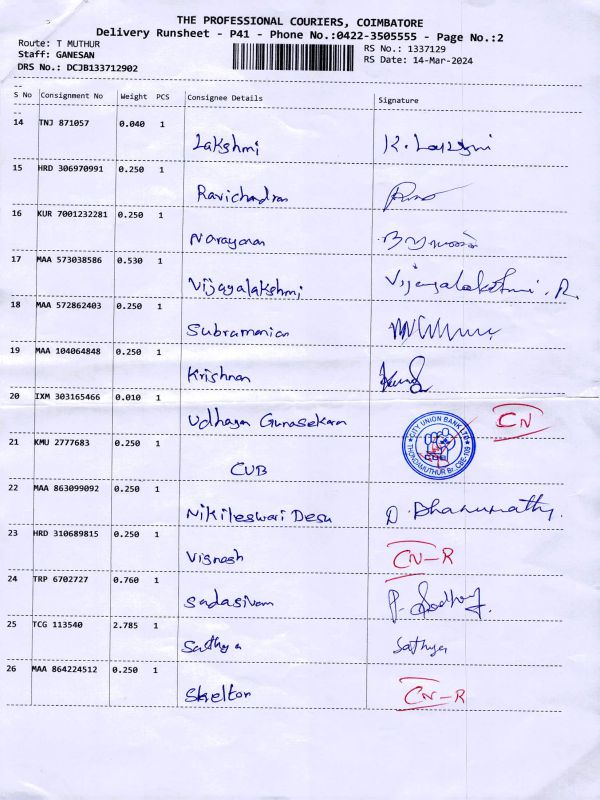 THE PROFESSIONAL COURIERS, COIMBATORE
Delivery Runsheet - P41 - Phone No.:0422-3505555 - Page No.:2
Route: T MUTHUR
RS No.: 1337129
Staff: GANESAN
RS Date: 14-Mar-2024
DRS No.: DCJB133712902
S No Consignment No Weight PCS Consignee Details Signature
14 TNJ 871057 0.040 1
Lakshmi K. Lakshmi
15 HRD 306970991 0.250 1
Ravichandran
16 KUR 7001232281 0.250 1
Narayanan
17 MAA 573038586 0.530 1
Vijayalakshmi Vijayalakshmi. R.
18 MAA 572862403 0.250 1
Subramanian
19 MAA 104064848 0.250 1
Krishnan
20 IXM 303165466 0.010 1
Udhaya Gunasekaran CN
21 KMU 2777683 0.250 1
CUB CITY UNION BANK LTD THONDAMUTHUR Br. CBE-109 CUB
22 MAA 863099092 0.250 1
Nikileswari Desu D. Bhanumathy.
23 HRD 310689815 0.250 1
Vignash CN-R
24 TRP 6702727 0.760 1
Sadasivam
25 TCG 113540 2.785 1
Sathya Sathya
26 MAA 864224512 0.250 1
Skelton CN-R